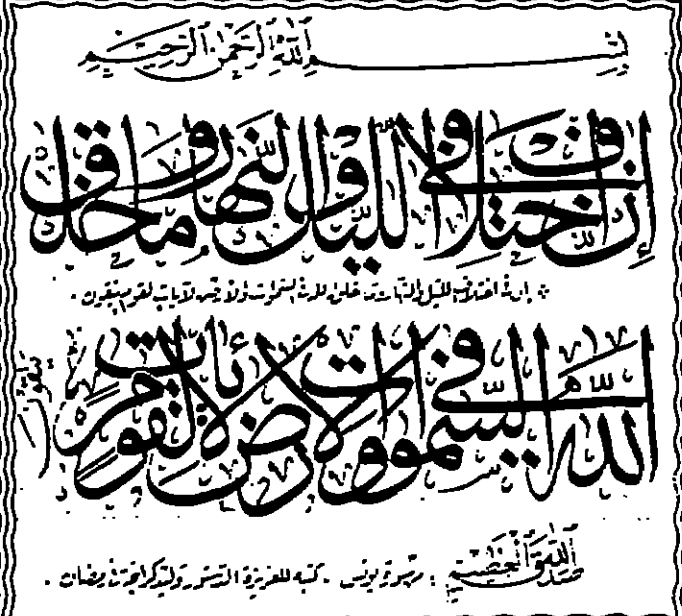 بسم الله الرحمن الرحيم
إن في اختلاف الليل والنهار وما خلق
إن في اختلاف الليل والنهار وما خلق الله في السموات والأرض لآيات لقوم يتقون .
الله في السموات والأرض لآيات لقوم
يتقون
صدق الله العظيم : من سورة يونس . كتبه للعزيزة رمضان .